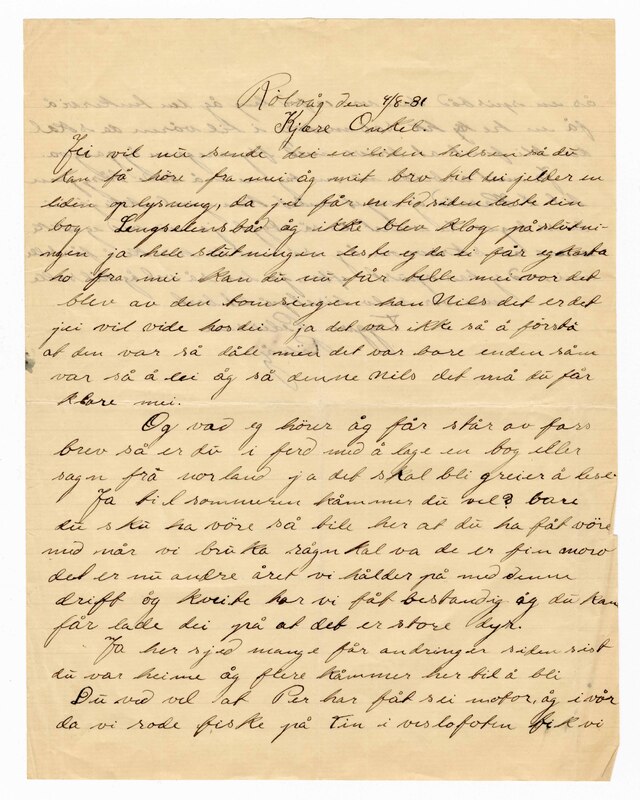 Rølvåg den 4/8-31
Kjare Onkel.
Jei vil nu sende dei en liden hilsen så du
kan få höre fra mei åg mit brv bil lei jeller en
liden oplysning, da jei får en tid siden leste din
bog Lengselensbåd åg ikke blev klog på slutni-
ngen ja hele slutningen leste eg da ei får eg
ho fra mei kan du nu får telle mei vor det
blev av den tomsingen han Nils det er det
jei vil vide hos dei ja det var ikke så å förstå
at den var så dåle men det var bare enden såm
var så å lei åg så denne Nils det må du får
klare mei.
Og vad eg hörer åg får står av fars
brev så er du i ferd med å lage en bog eller
sagn frå norland ja det skal bli greier å lese
Ja til sommeren kåmmer du vel? bare
du sku ha vöre så bile her at du ha fåt vöre
med når vi bruka sågn kal va de er fin moro
det er nu andre året vi hålder på med denne
drift åg kveite har vi fåt bestandig åg du kan
får lade dei på at det er store dyr.
Ja her sjed mange får andringer siden sist
du var heime åg flere kåmmer her til å bli
Du ved vel at Per har fåt sei motor, åg i vår
da vi rode fiske på Tin i veslofoten fik vi